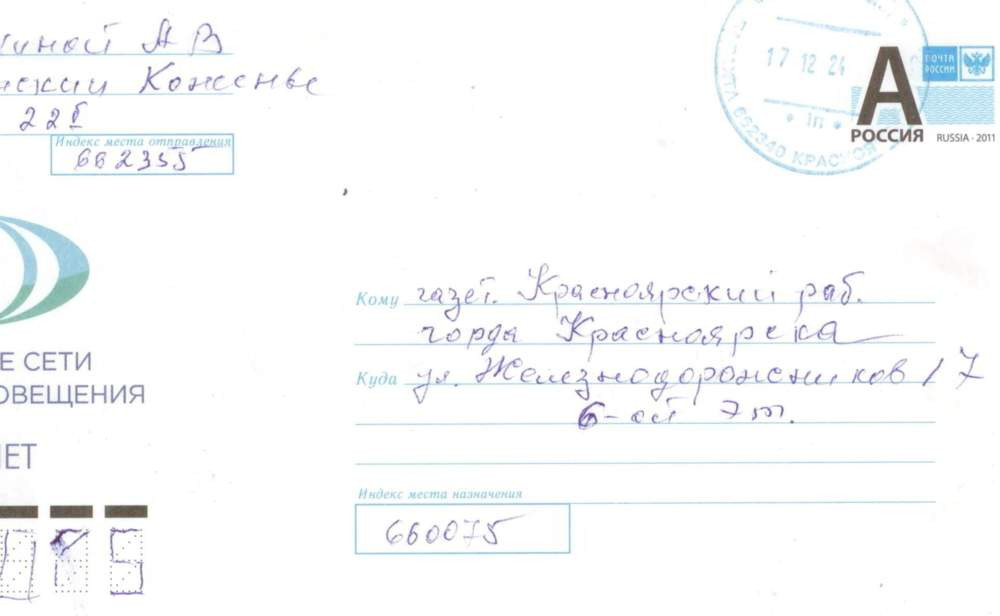 А В
22
Индекс места отправления
662355
17 12 24
1п
662340 КРАСНОЯ
А
ПОЧТА
РОССИИ
РОССИЯ
RUSSIA · 2011
Кому газет. Красноярский раб.
горда Красноярска
Куда ул. Железнодорожников 17
6-ой эт.
Индекс места назначения
660075
Е СЕТИ
ОВЕЩЕНИЯ
ЛЕТ